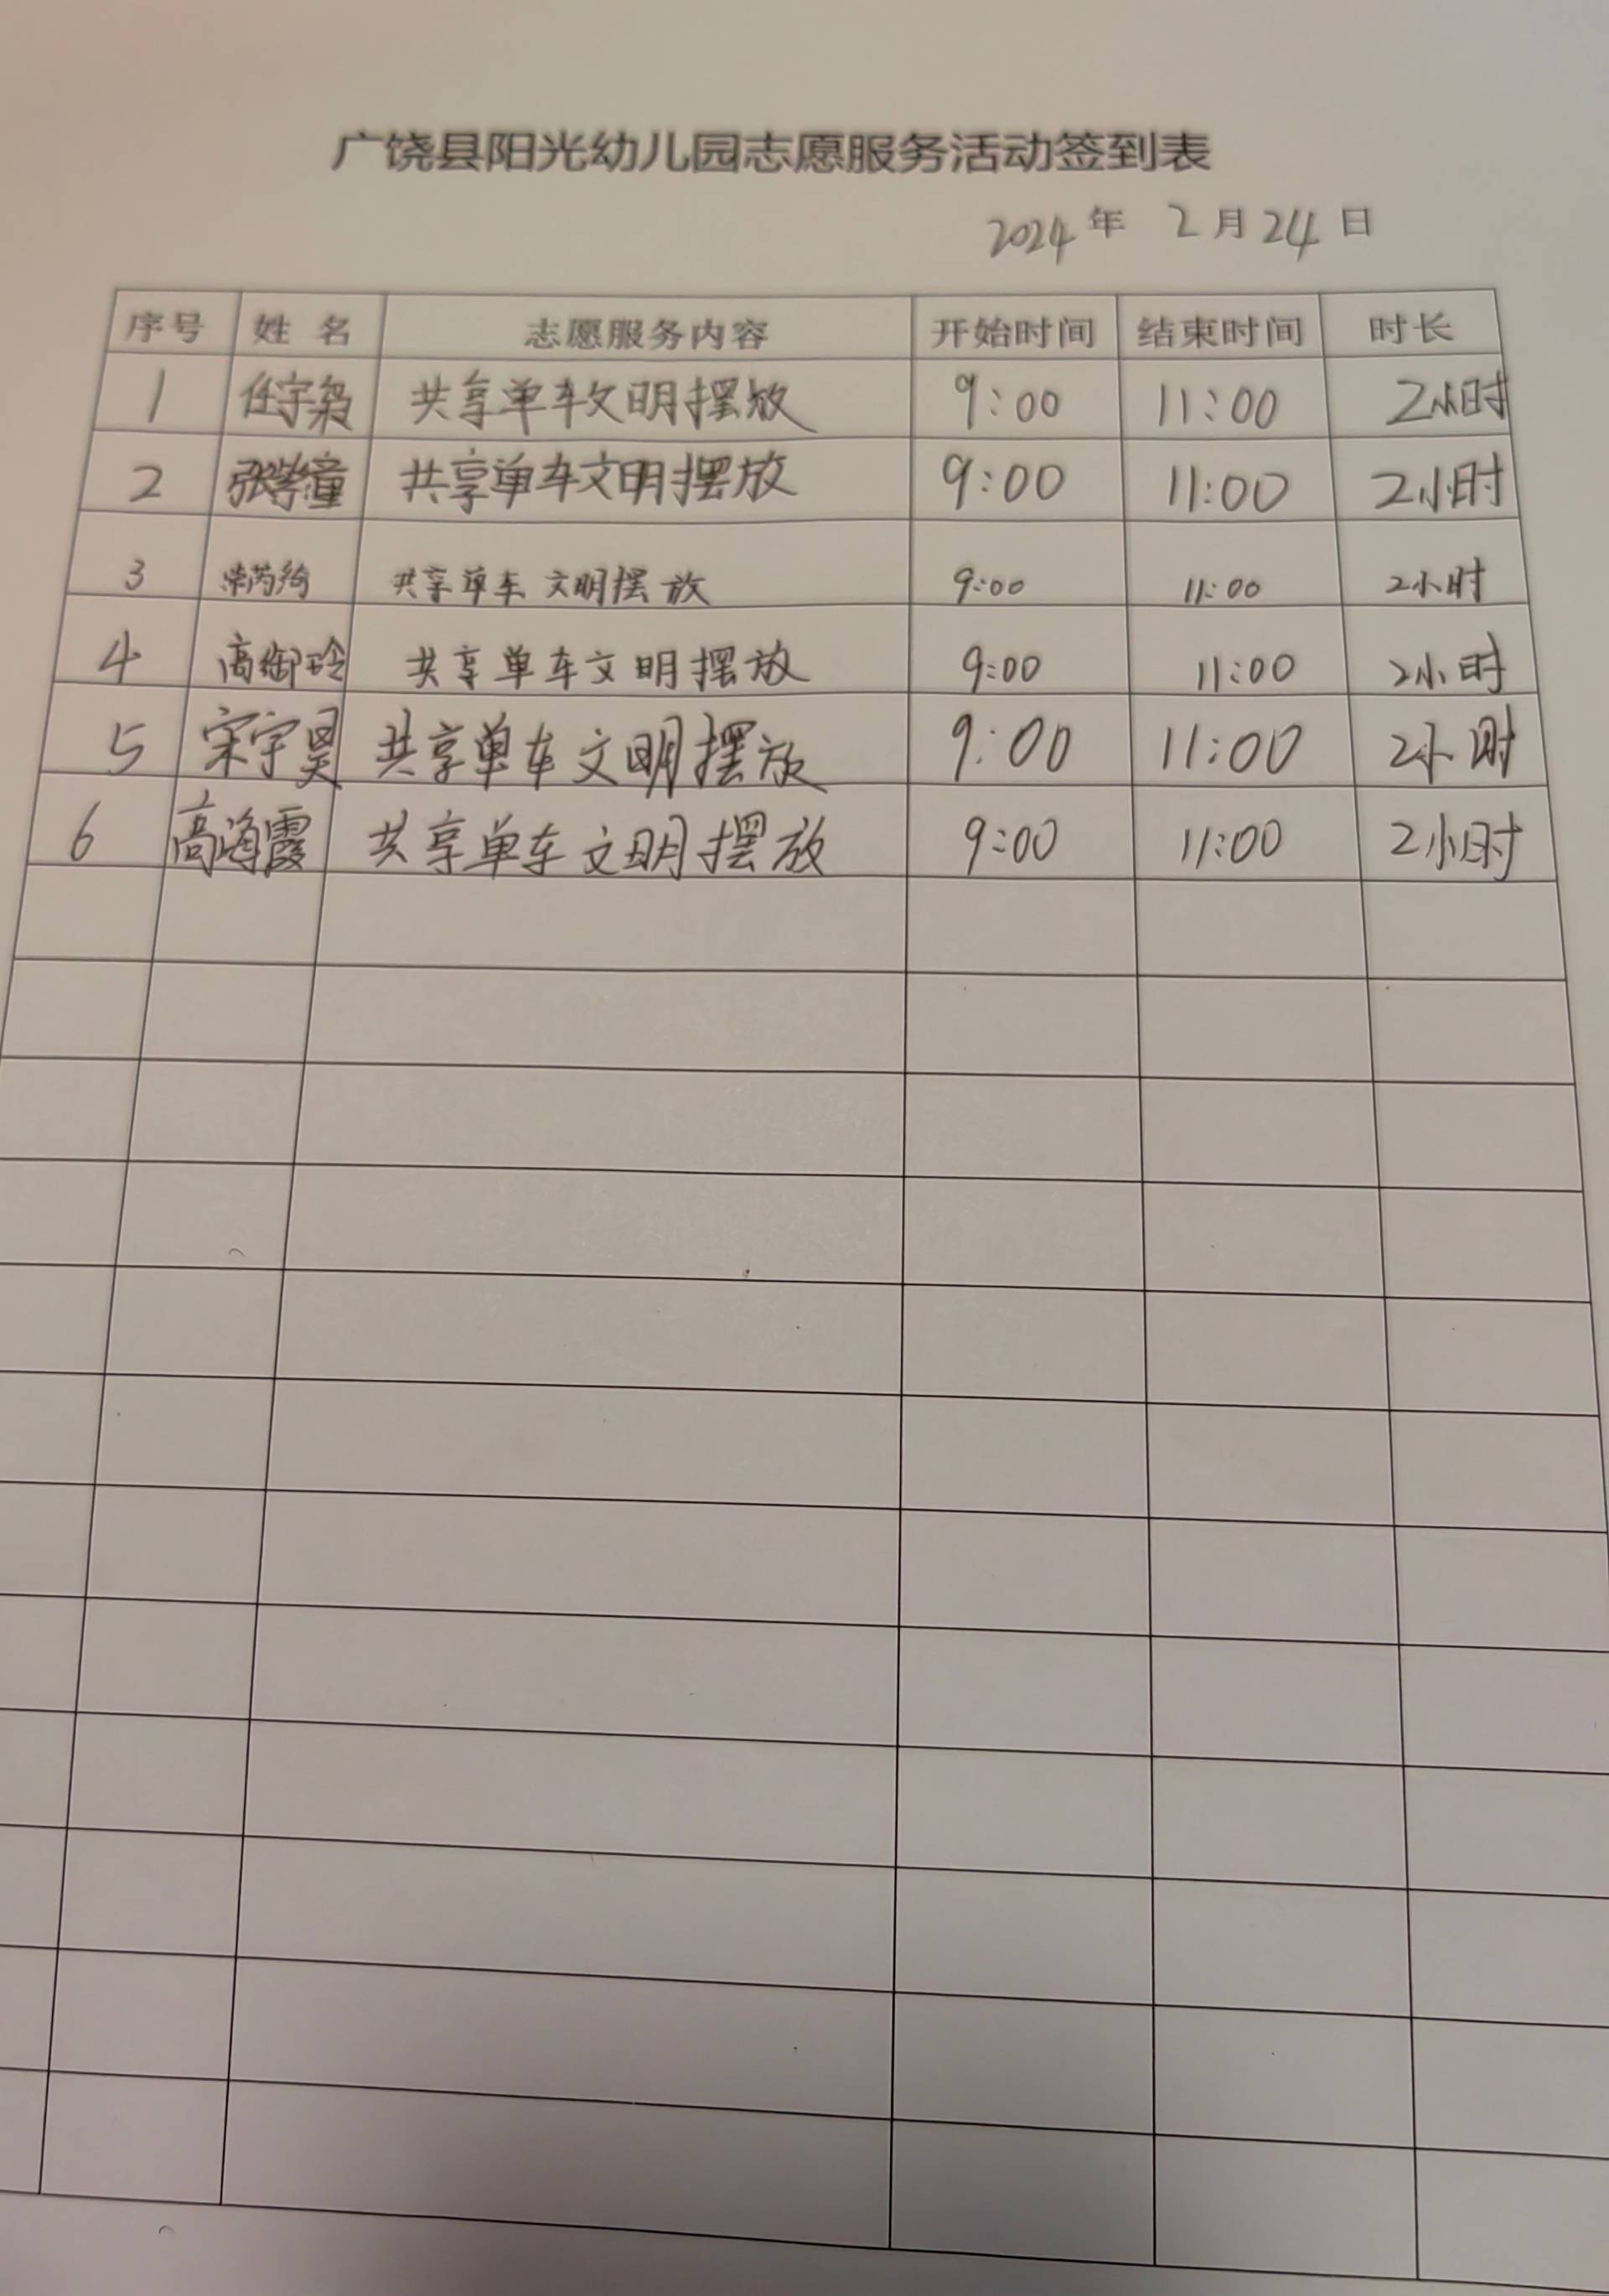 广饶县阳光幼儿园志愿服务活动签到表
2024 年 2 月 24 日
序号 姓 名 志愿服务内容 开始时间 结束时间 时长
1 任宇枭 共享单车文明摆放 9:00 11:00 2小时
2 共享单车文明摆放 9:00 11:00 2小时
3 共享单车文明摆放 9:00 11:00 2小时
4 高御玲 共享单车文明摆放 9:00 11:00 2小时
5 宋宇昊 共享单车文明摆放 9:00 11:00 2小时
6 高海霞 共享单车文明摆放 9:00 11:00 2小时